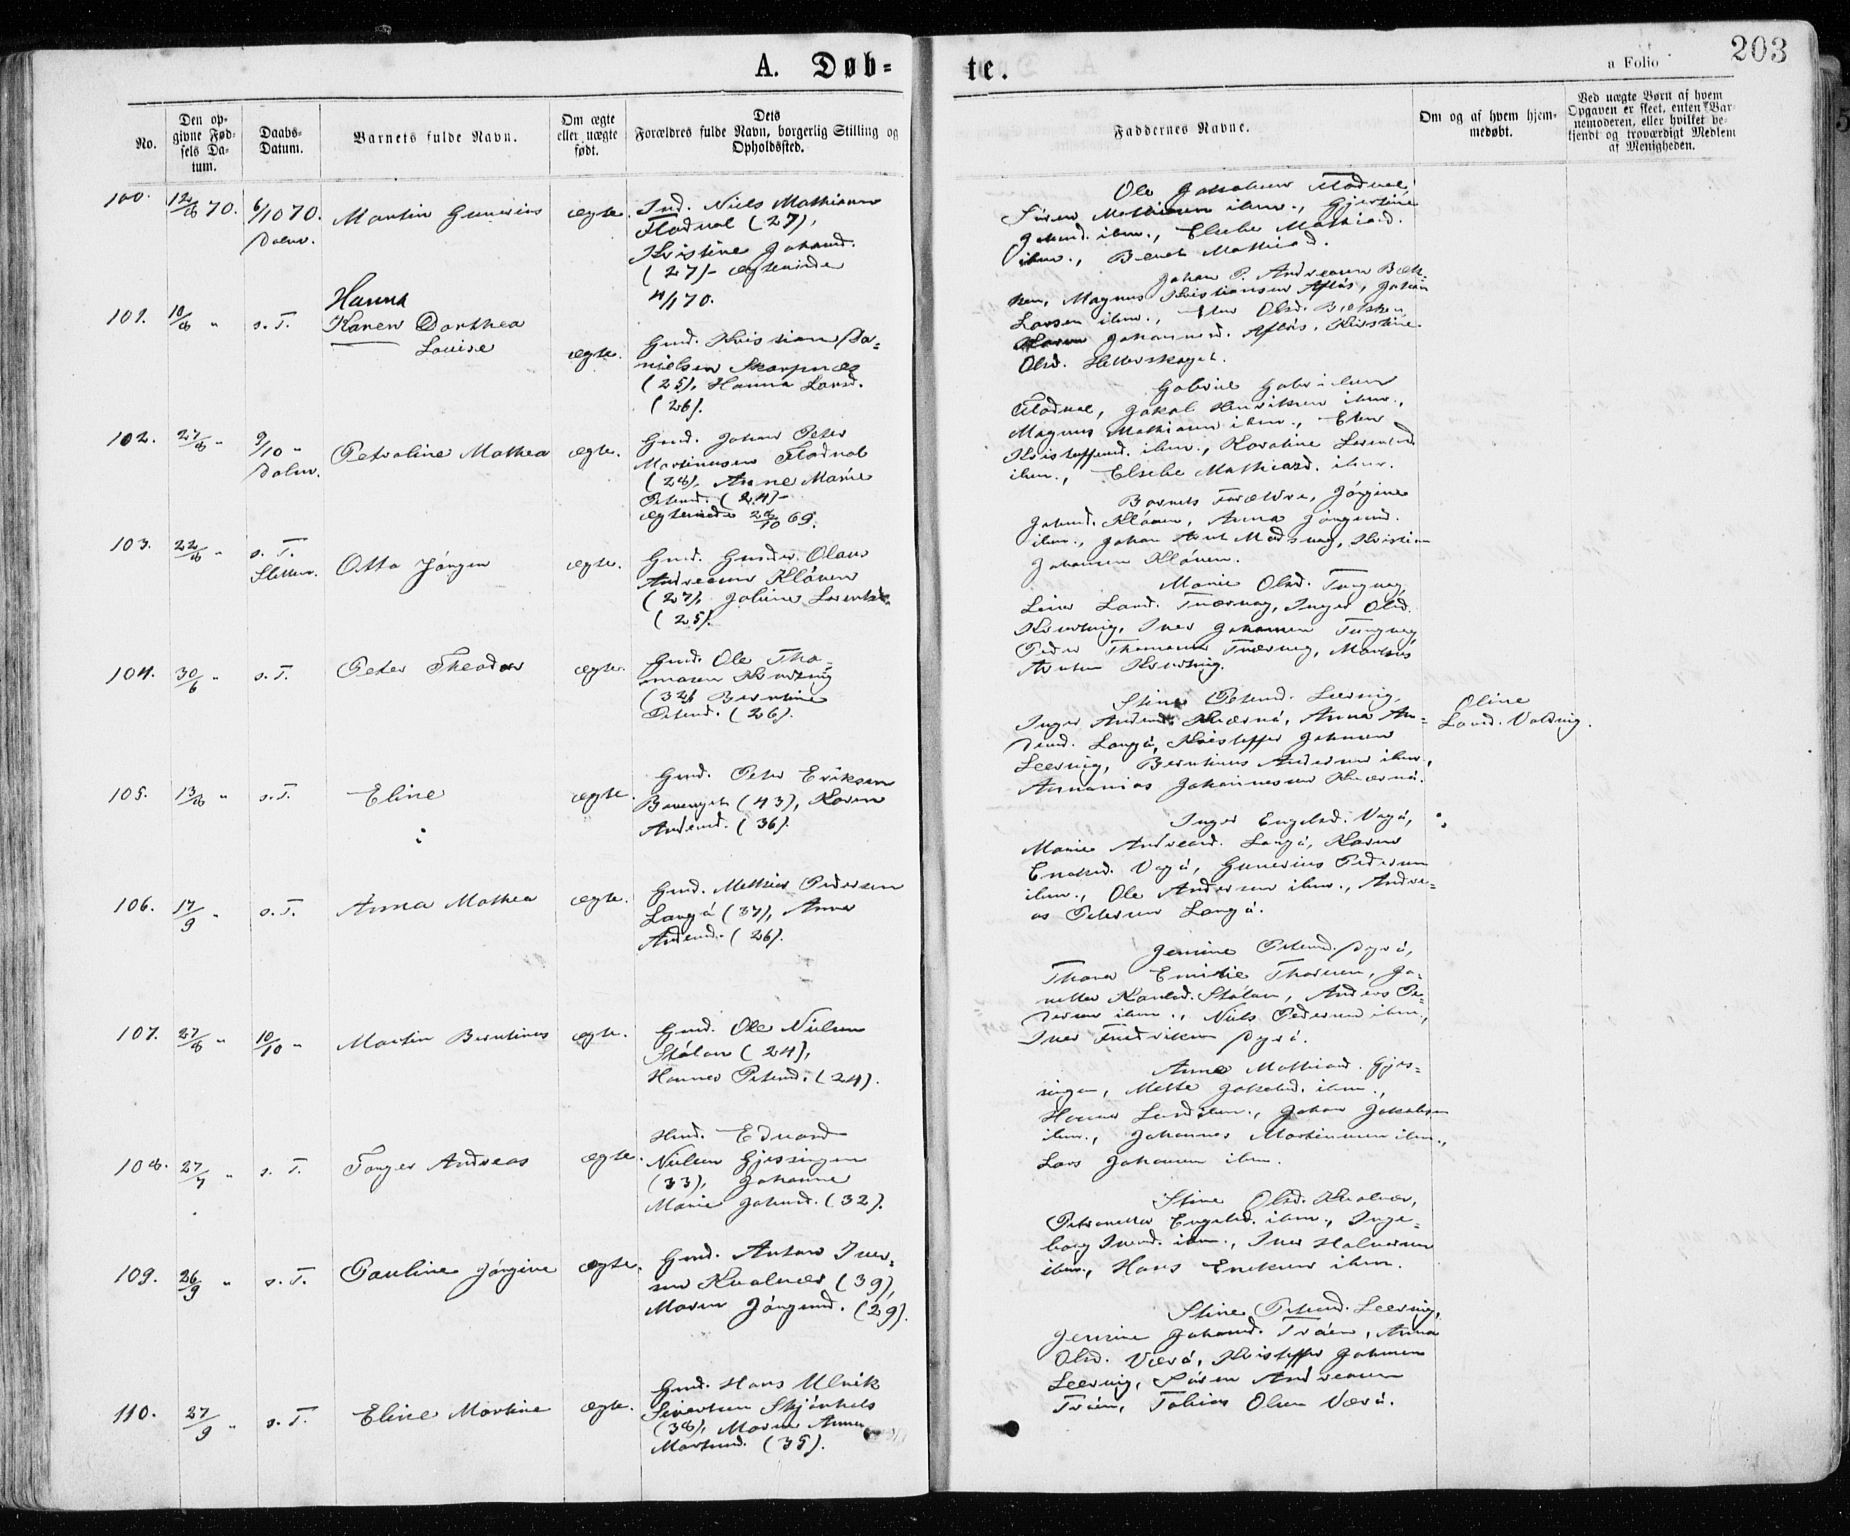 203
A. Døb=
te.
a Folio
No.
Den op-
givne Fød-
sels Da-
tum.
Daabs-
Datum.
Barnets fulde Navn.
Om ægte
eller uægte
født.
Dets
Forældres fulde Navn, borgerlig Stilling og
Opholdssted.
Faddernes Navne.
Om og af hvem hjem-
medøbt.
Ved uægte Børn af hvem
Opgaven er skeet, enten Bar-
nemoderen, eller hvilket be-
kjendt og troværdigt Medlem
af Menigheden.
100. 12/8 70. 6/10 70. Martin Gunerius ægte. Ind. Niels Mathiasen
Flodval (27),
Kristine Johansd.
(27) - ægteviede
4/1 70.
Ole Jakobsen Flodval,
Sören Mathiasen ibm., Gjertine
Johansd. ibm., Elsebe Mathiasd.
ibm., Beret Mathiasd.
101. 10/8 " s. T. Hanna
Karen Dorthea
Louise
ægte. Gmd. Kristian Da=
nielsen Skarpnes
(25), Hanna Larsd.
(26).
Johan P. Andreasen Bæk-
ken, Magnus Kristiansen Aflös, Johan
Larsen ibm., Olsd. Bækken
Johannesd. Aflös, Kirstine
Olsd. Hellerskoget.
102. 27/8 " 9/10 " Petroline Mathea ægte. Gmd. Johan Peter
Martinusen Flodval
(28), Anne Marie
Petersd. (24) -
ægteviede 28/10 69.
Gabriel Gabrielsen
Flodval, Jakob Henriksen ibm.,
Magnus Mathiasen ibm., Elen
Kristoffersd. ibm., Karoline Lorentsd.
ibm., Elsebe Mathiasd. ibm.
103. 22/8 " s. T. Otto Jörgen ægte. Gmd. Gunder Olaus
Andreasen Klöven
(27), Joline Lorentsd.
(25).
Barnets Forældre, Jörgine
Johansd. Klöven, Anna Jörgensd.
ibm., Johan Kristian
Johansen Klöven.
104. 30/6 " s. T. Peter Theodor ægte. Gmd. Ole Tho=
masen
(32), Berntine
Petersd. (26).
Marie Olsd. Tungvåg,
Line Larsd. Tværvåg, Inger Olsd.
Iver Johansen Tungvåg
Peder Thomasen Tværvåg, Martin
105. 13/8 " s. T. Eline ægte. Gmd. Peter Eriksen
(43), Karen
Andersd. (36).
Stine Petersd. Leervig,
Inger Andersd. Anna An=
dersd. Langö, Kristoffer Johnsen
Leervig, Berntinus Andersen ibm.,
Annanias Johannesen
Oline
Larsd. Valdvig.
106. 17/9 " s. T. Anna Mathea ægte. Gmd. Mathias Pedersen
Langö (37), Anne
Andersd. (26).
Inger Engelsd. Vågö,
Marie Andreasd. Langö, Karen
Vågö, Gunerius Pedersen
ibm., Ole Andersen ibm., Andre=
as Petersen Langö.
107. 27/8 " 10/10 " Martin Berntinus ægte. Gmd. Ole Nielsen
Stölan (24),
Hanna Petersd. (24).
Jensine Petersd. Dyrö,
Thora Emilie Thorsen, Ja=
netta Karlsd. Stölan, Anders Pe=
dersen ibm., Niels Pedersen ibm.,
Iver Fredriksen Dyrö.
108. 27/7 " s. T. Torger Andreas ægte. Hmd. Edvard
Nielsen Gjessingen
(33), Johanne
Marie Johansd. (32).
Anne Mathiasd. Gjes=
singen, Mette Jakobsd. ibm.,
Hanna Larsd. ibm., Johan Jakobsen
ibm., Johannes Martinusen ibm.,
Lars Johansen ibm.
109. 26/9 " s. T. Pauline Jörgine ægte. Gmd. Anton Iver=
sen Kvalnes (39),
Maren Jörgensd. (29).
Stine Olsd. Kvalnes,
Petronella Engelsd. ibm., Inge=
borg Iversd. ibm., Iver Halvorsen
ibm., Hans Eriksen ibm.
110. 27/9 " s. T. Eline Martine ægte. Gmd. Hans Ulrik
Sivertsen Skjönhals
(38), Maren Anna
Martinsd. (35).
Stine Petersd. Leervig,
Jensine Johansd. Tröen, Anna
Olsd. Værö, Kristoffer Johnsen
Leervig, Sören Andreasen
Tröen, Tobias Olsen Værö.